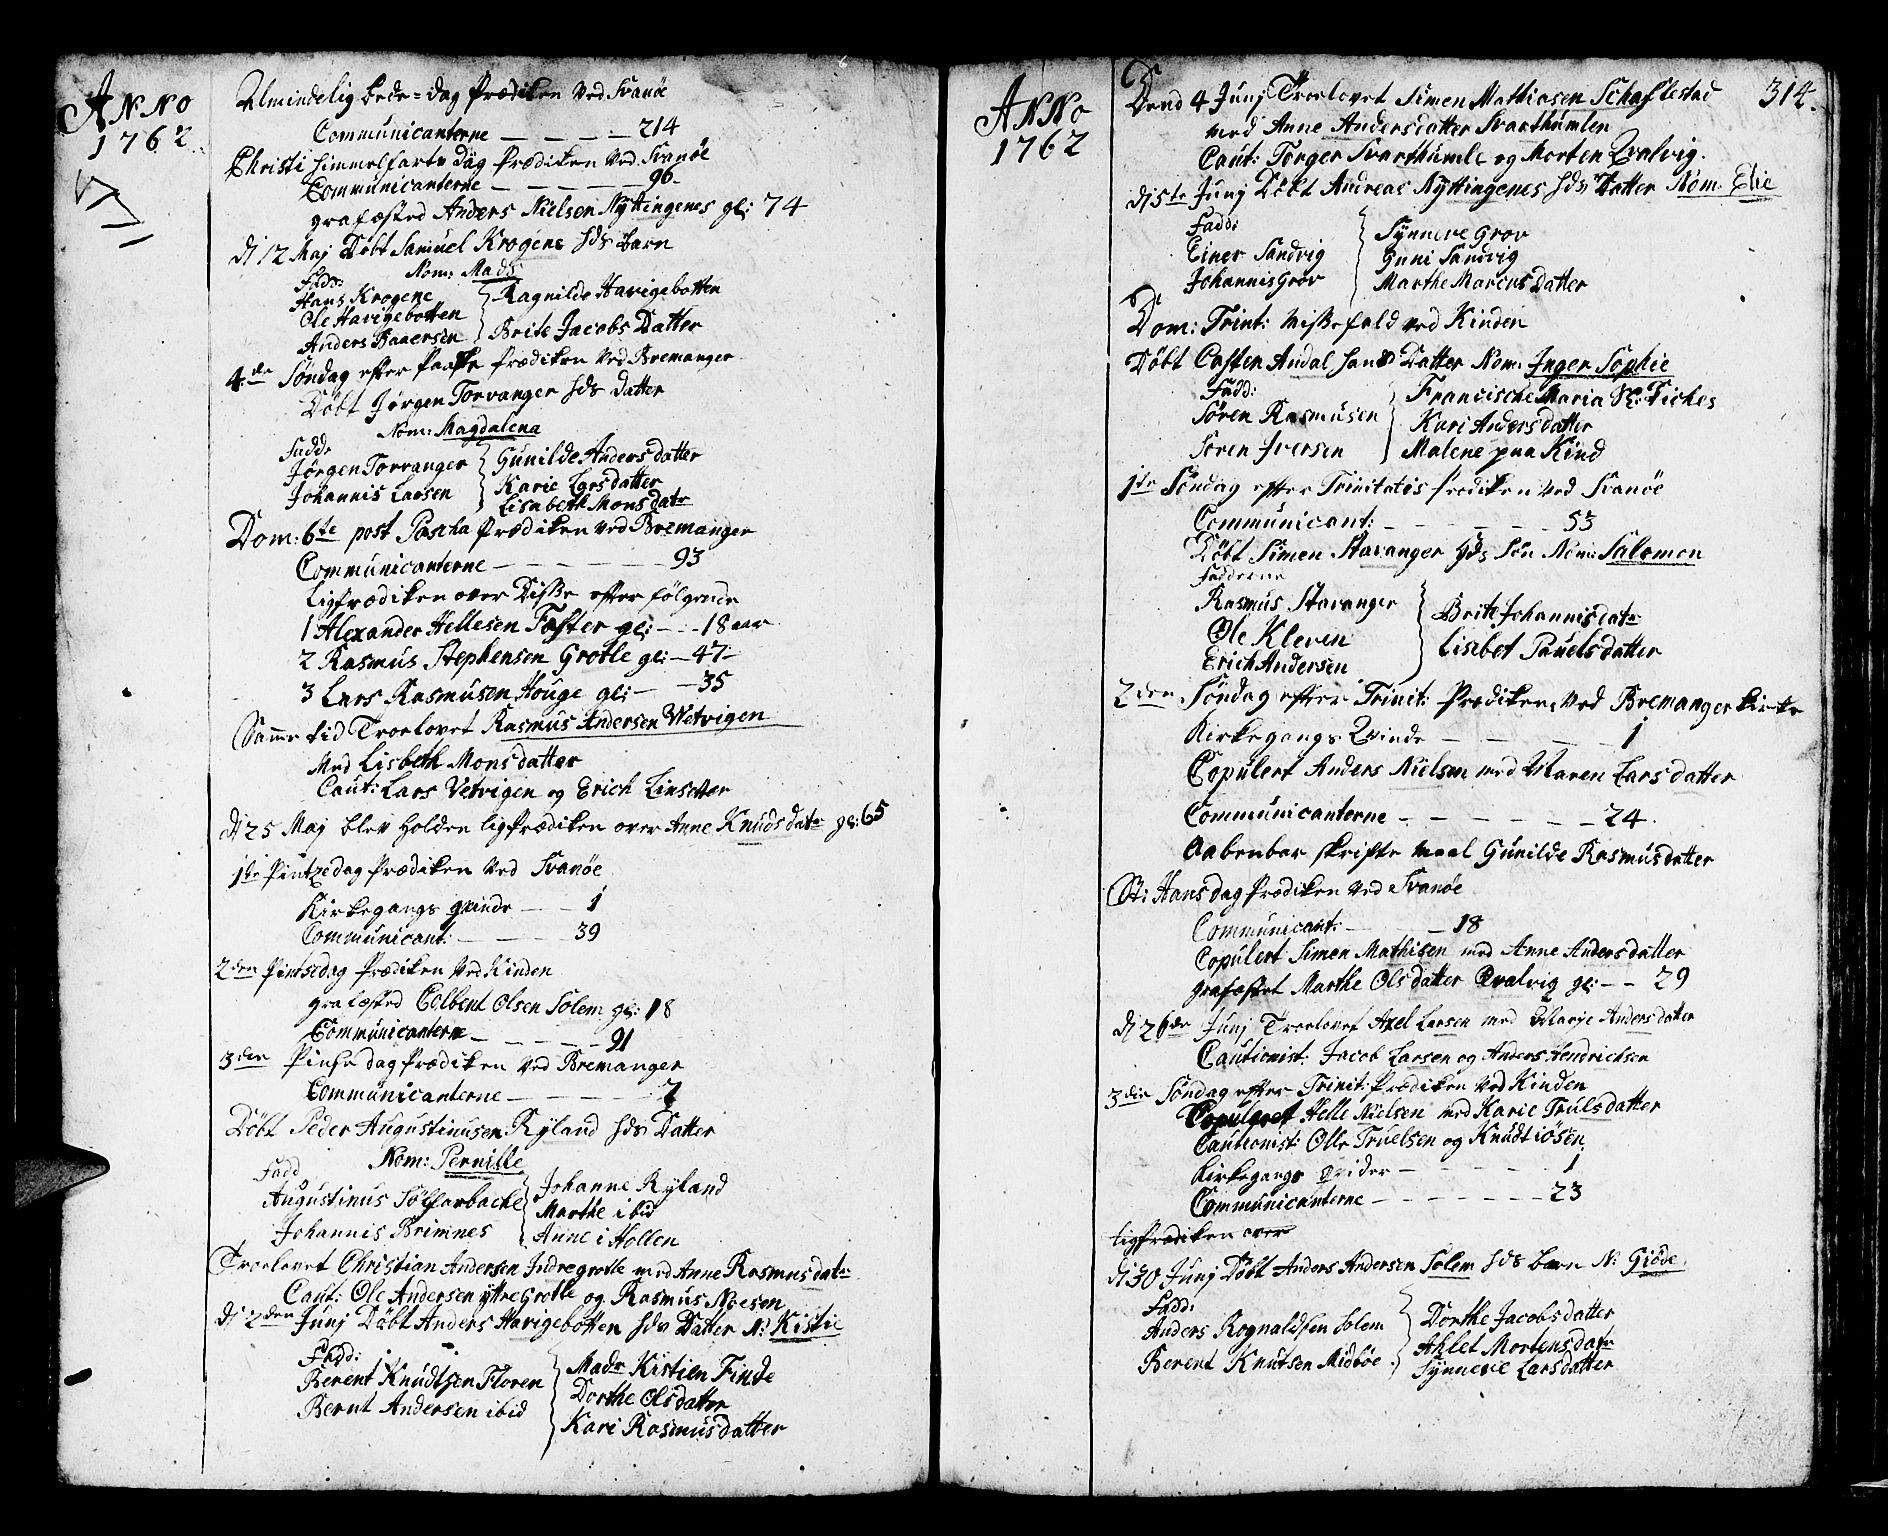 ANNO
1762
Almindelig bede-dag Prædiken ved Svanöe
Communicanterne 214
Christi himmelfarts dag Prædiken ved Svanöe
Communicanterne 96
grafæsted Anders Nielsen Nyttingenes gl: 74
dj 12 Maj Döbt Samuel Krogens hds barn
Nom: Mads
Fadd:
Hans Krogene
Ole Havigebotten
Anders Baaersen
Ragnilde Havigebotten
Brite Jacobs Datter
4de Söndag efter Paaske Prædiken ved Bremanger
Döbt Jörgen Torvanger hds datter
Nom: Magdalena
Fadd:
Jörgen Torvanger
Johannis Larsen
Gunilde Anders datter
Karie Larsdatter
Lisabeth Mons datr
Dom: 6te post Pascha Prædiken ved Bremanger
Communicanterne 93
Ligprædiken over Disse efter fölgende
1 Alexander Hellesen Foster gl: 18 aar
2 Rasmus Stephensen Grotle gl: 47
3 Lars Rasmusen Houge gl: 35
Samme tid Troelovet Rasmus Andersen Vetvigen
Med Lisbeth Monsdatter
Caut: Lars Vetvigen og Erich Linsetter
dj 25 Maj blev holden ligprædiken over Anne Knudsdatr gl: 65
1te Pintzedag Prædiken ved Svanöe
Kirkegangs qvinde 1
Communicant: 39
2den Pintsedag Prædiken ved Kinden
grafæsted Colbent Olsen Solem gl: 18
Communicanterne 91
3den Pinsedag Prædiken ved Bremanger
Communicanterne 7
Döbt Peder Augustinusen Ryland hds Datter
Nom: Pernille
Fadd
Augustinus Sölfarbacke
Johannis Brimnes
Johanne Ryland
Marthe ibid
Anne i Hollen
Troelovet Christian Andersen Indregrotle med Anne Rasmusdatr
Caut: Ole Andersen yttre Grotle og Rasmus Moesen
dj 2den Junj Döbt Anders Havigebotten hds Datter N: Kistie
Fadd:
Berent Knudtsen Floren
Bernt Andersen ibid
Madr Kistien Finde
Dorthe Olsdatter
Kari Rasmusdatter
ANNO
1762
314.
Dend 4 Junj Troelovet Simen Mathiasen Schaflestad
med Anne Andersdatter Svarthumlen
Caut: Torger Svarthumle og Morten Qvalvig.
dj 5te Junj Döbt Andreas Nyttingenes hds Datter Nom. Elie
Fadd:
Einer Sandvig
Johannis Grov
Synneve Grov
Guni Sandvig
Marthe Marcus Datter
Dom: Trint: Missefald ved Kinden
Döbt Casten Andal hans Datter Nom: Inger Sophie
Fadd:
Sören Rasmusen
Soren Iversen
Francische Maria Sl: Fiches
Kari Andersdatter
Malene paa Kind
1te Söndag efter Trinitatis Prædiken ved Svanöe
Communicant: 53
Döbt Simen Stavanger hds Sön Nom: Salomon
Fadderne
Rasmus Stavanger
Ole Kleven
Erich Andersen
Brite Johannisdatr
Lisebet Pauelsdatter
2den Söndag efter Trinit: Prædiken ved Bremanger kirke
Kirkegangs Qvinde 1
Copulert Anders Nielsen med Maren Larsdatter
Communicanterne 24
Aabenbar skrifte maal Gunilde Rasmusdatter
St: Hansdag Prædiken ved Svanöe
Communicant: 18
Copulert Simen Mathisen med Anne Andersdatter
grafæstet Marthe Olsdatter Qvalvig gl: 29
dj 26de Junj Troelovet Axel Larsen med Marje Andersdatter
Cautionist: Jacob Larsen og Anders Hendrichsen
3die Söndag efter Trinit: Prædiken ved Kinden
Copuleret Helle Nielsen med Karie Trulsdatter
Cautionist: Olle Truelsen og Knudt iösen
Kirkegangs qvider 1
Communicanterne 23
Ligprædiken over
dj 30 Junj Döbt Anders Andersen Solem hds barn N: Giöde.
Fadd:
Anders Rognaldsen Solem
Berent Knutsen Midböe
Dorthe Jacobsdatter
Ahlet Mortensdatr
Synneve Larsdatter